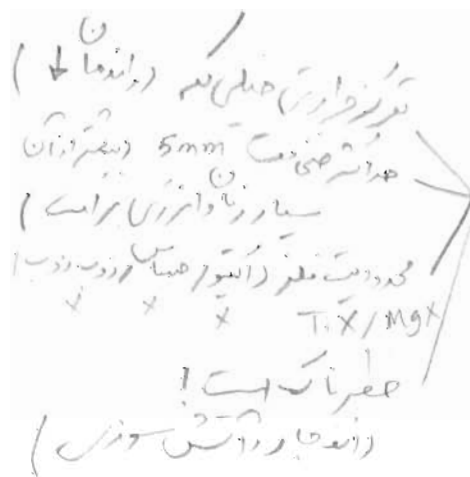 تمرکز حرارتی خیلی کم (راندمان ↓)
حداکثر ضخامت 5mm (بیشتر از آن
بسیار زمان و انرژی بر است)
محدودیت فلز (اکتیو/حساس/زود ذوب)
Ti X / Mg X X X X
خطرناک است!
(انفجار و آتش سوزی)